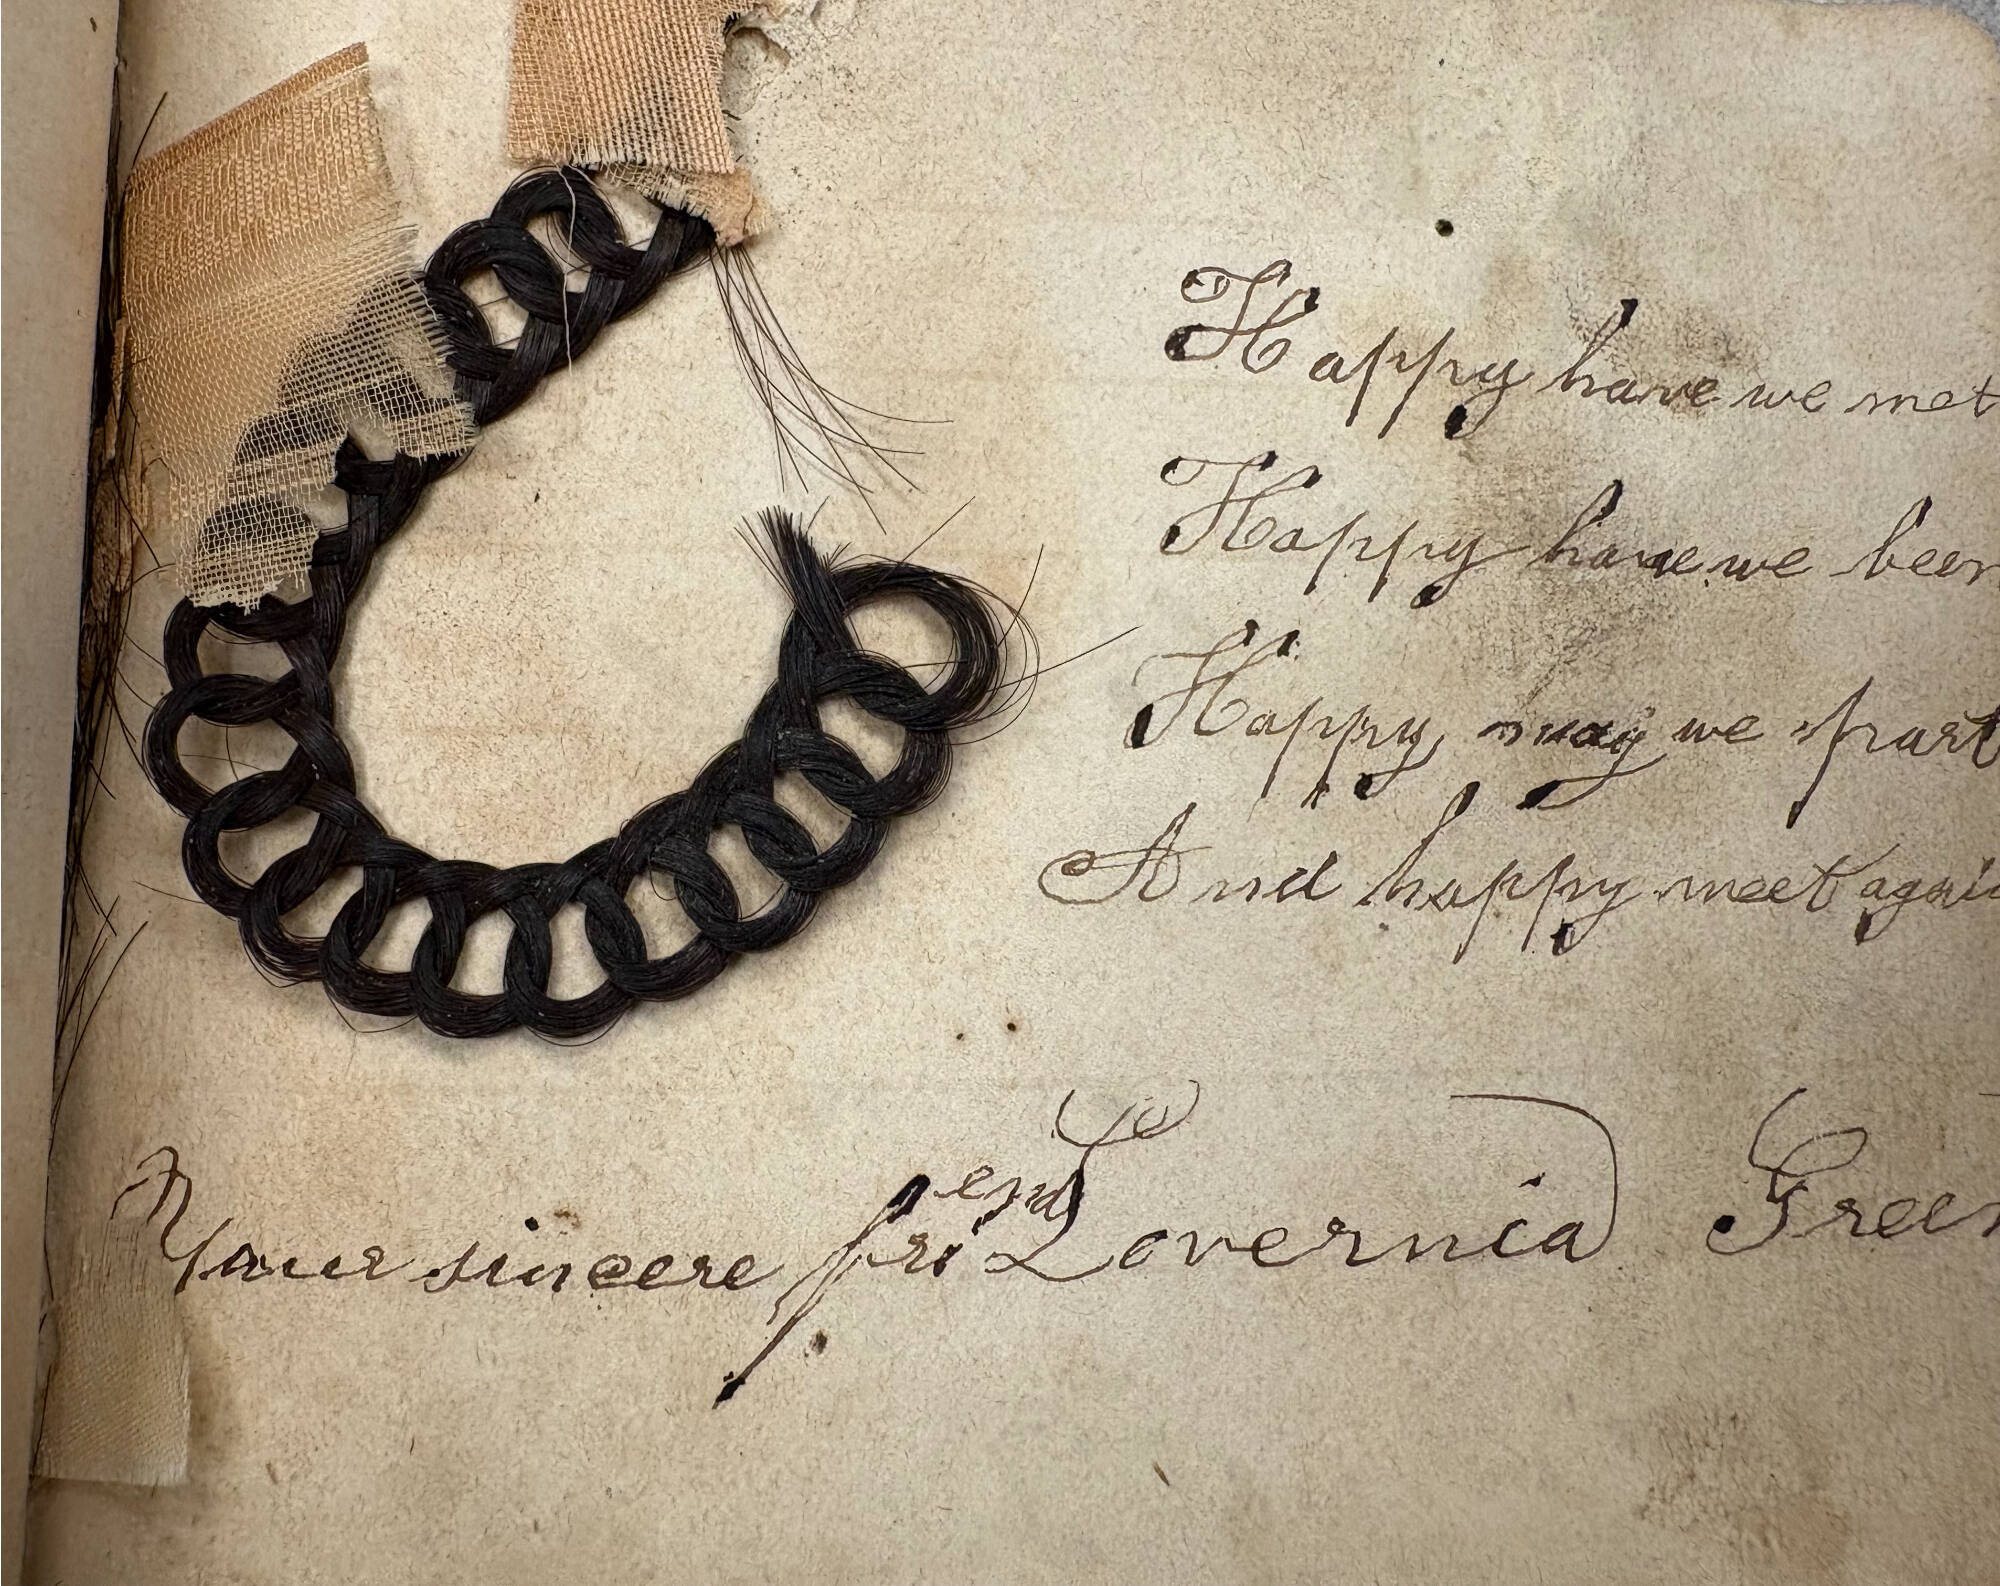 Happy have we met
Happy have we been
Happy may we part
And happy meet again
Your sincere friend Lovernia Green